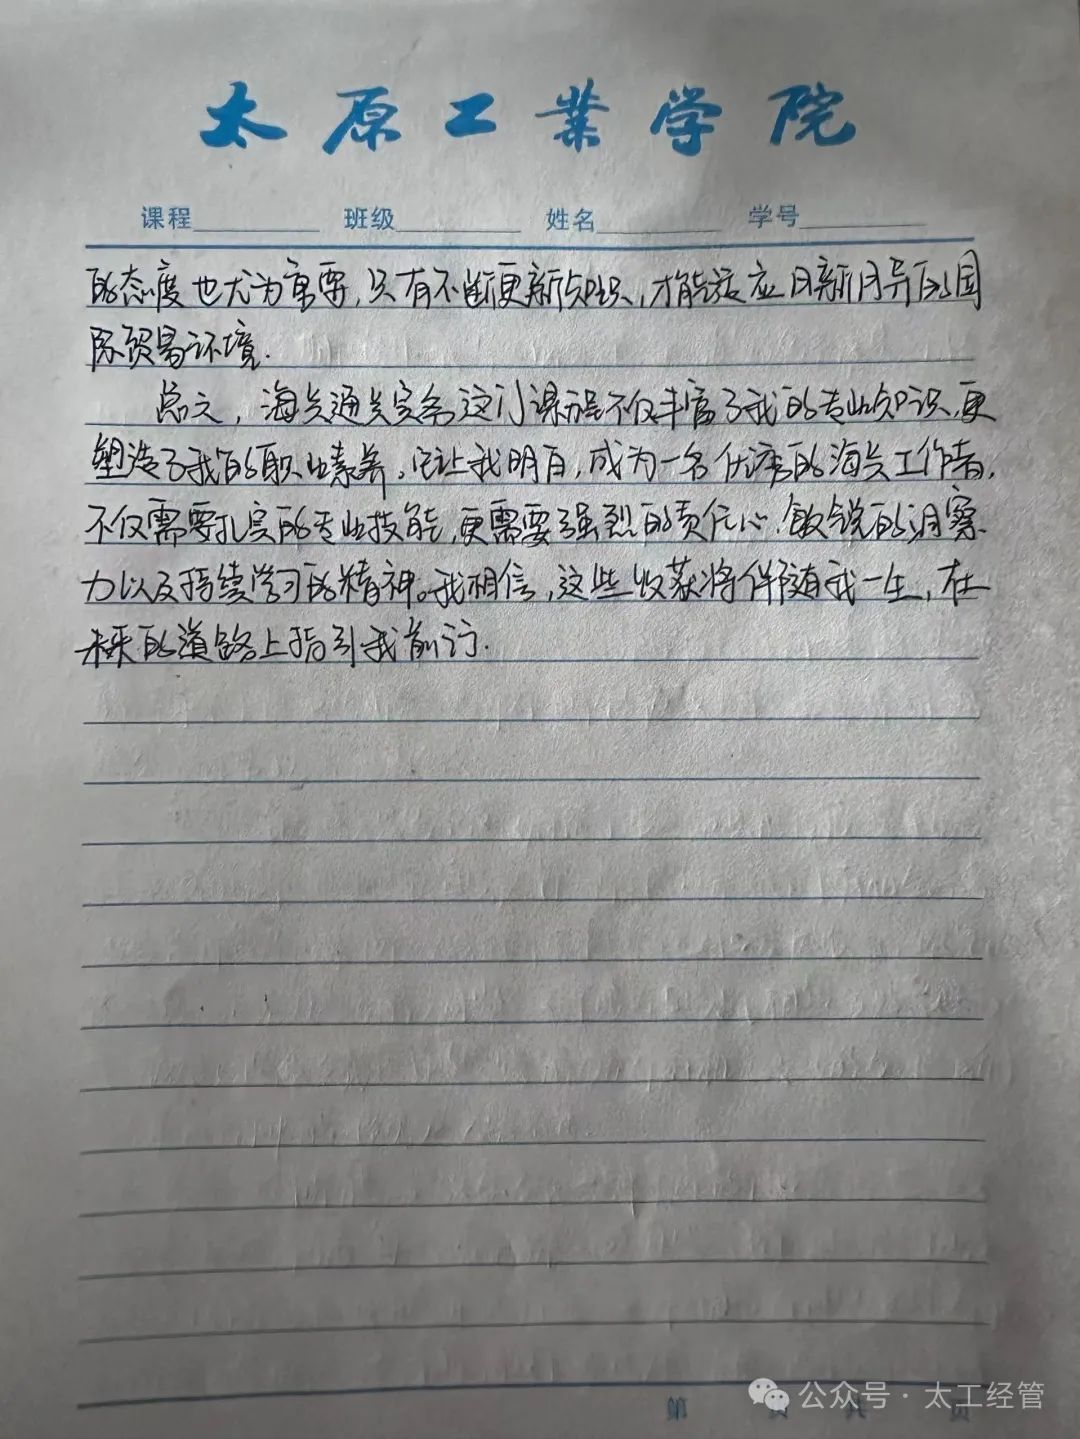 太原工业学院
课程 班级 姓名 学号
的态度也尤为重要，只有不断更新知识，才能适应日新月异的国
际贸易环境.
总之，海关通关实务这门课程不仅丰富了我的专业知识，更
塑造了我的职业素养。它让我明白，成为一名优秀的海关工作者，
不仅需要扎实的专业技能，更需要强烈的责任心、敏锐的洞察
力以及持续学习的精神。我相信，这些收获将伴随我一生，在
未来的道路上指引我前行.
公众号·太工经管